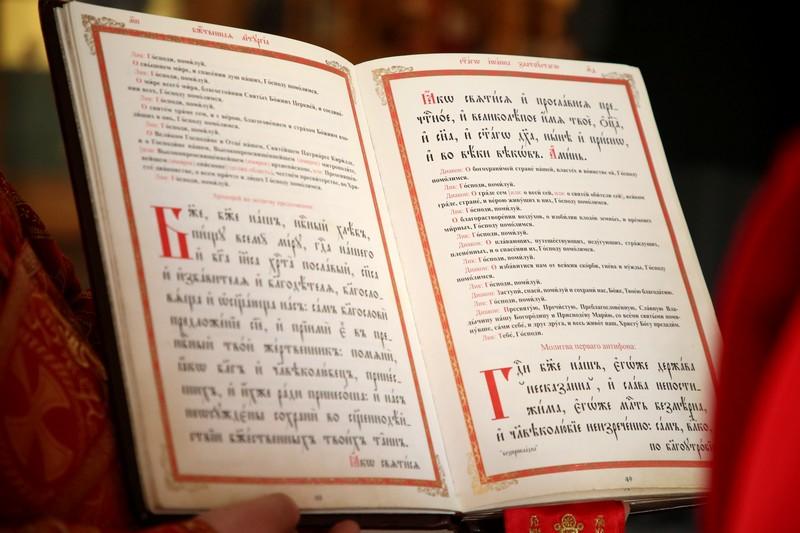 Бж҃е́ственная літургі́а
Лик: Го́споди, поми́луй.
О свы́шнем ми́ре, и спасе́нии душ на́ших, Го́споду помо́лимся.
Лик: Го́споди, поми́луй.
О ми́ре всего́ ми́ра, благостоя́нии Святы́х Бо́жиих Церкве́й, и соедине́-
нии всех, Го́споду помо́лимся.
Лик: Го́споди, поми́луй.
О святе́м хра́ме сем, и с ве́рою, благогове́нием и стра́хом Бо́жиим вхо-
дя́щих в онь, Го́споду помо́лимся.
Лик: Го́споди, поми́луй.
О Вели́ком Господи́не и Отце́ на́шем, Святе́йшем Патриа́рхе Кири́лле,
Лик: Го́споди, поми́луй.
Бж҃е, бж҃е на́шъ, нбⷭ҇ный хлѣ́бъ,
пи́щꙋ всемꙋ̀ мі́рꙋ, гдⷭ҇а на́шего
и҆ бг҃а і҆и҃са хрⷭ҇та̀ посла́вый, сп҃са
и҆ и҆зба́вителѧ и҆ благодѣ́телѧ, благосло-
вѧ́ща и҆ ѡ҆сщ҃а́юща на́съ: са́мъ благословѝ
предложе́нїе сїѐ, и҆ прїимѝ є҆̀ въ пре-
нбⷭ҇ный тво́й же́ртвенникъ: помѧнѝ,
ꙗ҆́кѡ бл҃гъ и҆ чл҃вѣколю́бецъ, прине́с-
шихъ, и҆ и҆̀хже ра́ди принесо́ша: и҆ на́съ
неѡсꙋждє́ны сохранѝ во сщ҃еннодѣ́й-
ствїи бжⷭ҇твенныхъ твои́хъ та́инъ.
Ꙗ҆́кѡ ст҃и́сѧ
ст҃а́гѡ і҆ѡа́нна златоꙋ́стагѡ
Ꙗ҆́кѡ свѧти́сѧ и҆ просла́висѧ пре-
чтⷭ҇но́е, и҆ великолѣ́пое и҆́мѧ твоѐ, ѻ҆ц҃а̀,
и҆ сн҃а, и҆ ст҃а́гѡ дх҃а, ны́нѣ и҆ при́снѡ,
и҆ во вѣ́ки вѣкѡ́въ. А҆ми́нь.
Диакон: О богохрани́мей стране́ на́шей, власте́х и во́инстве ея́, Го́споду
помо́лимся.
Лик: Го́споди, поми́луй.
Диакон: О гра́де сем (или: о ве́си сей, или: о святе́й оби́тели сей), вся́ком
гра́де, стране́, и ве́рою живу́щих в них, Го́споду помо́лимся.
Лик: Го́споди, поми́луй.
Диакон: О благорастворе́нии возду́хов, о изоби́лии плодо́в земны́х, и вре́менех
ми́рных, Го́споду помо́лимся.
Лик: Го́споди, поми́луй.
Диакон: О пла́вающих, путеше́ствующих, неду́гующих, стра́ждущих,
плене́нных, и о спасе́нии их, Го́споду помо́лимся.
Лик: Го́споди, поми́луй.
Диакон: О изба́витися нам от вся́кия ско́рби, гне́ва и ну́жды, Го́споду
помо́лимся.
Лик: Го́споди, поми́луй.
Диакон: Заступи́, спаси́, поми́луй и сохрани́ нас, Бо́же, Твое́ю благода́тию.
Лик: Го́споди, поми́луй.
Диакон: Пресвяту́ю, Пречи́стую, Преблагослове́нную, Сла́вную Вла-
ды́чицу на́шу Богоро́дицу и Присноде́ву Мари́ю, со все́ми святы́ми помя-
ну́вше, са́ми себе́, и друг дру́га, и весь живо́т наш, Христу́ Бо́гу предади́м.
Лик: Тебе́, Го́споди.
Молитва первого антифона:
Гдⷭ҇и бж҃е на́шъ, є҆гѡ́же держа́ва
несказа́нна*, и҆ сла́ва непости-
жи́ма, є҆гѡ́же млⷭ҇ть безмѣ́рна,
и҆ чл҃вѣколю́бїе неизрече́нно: са́мъ, влⷣко,
по бл҃гоꙋтро́бї
49